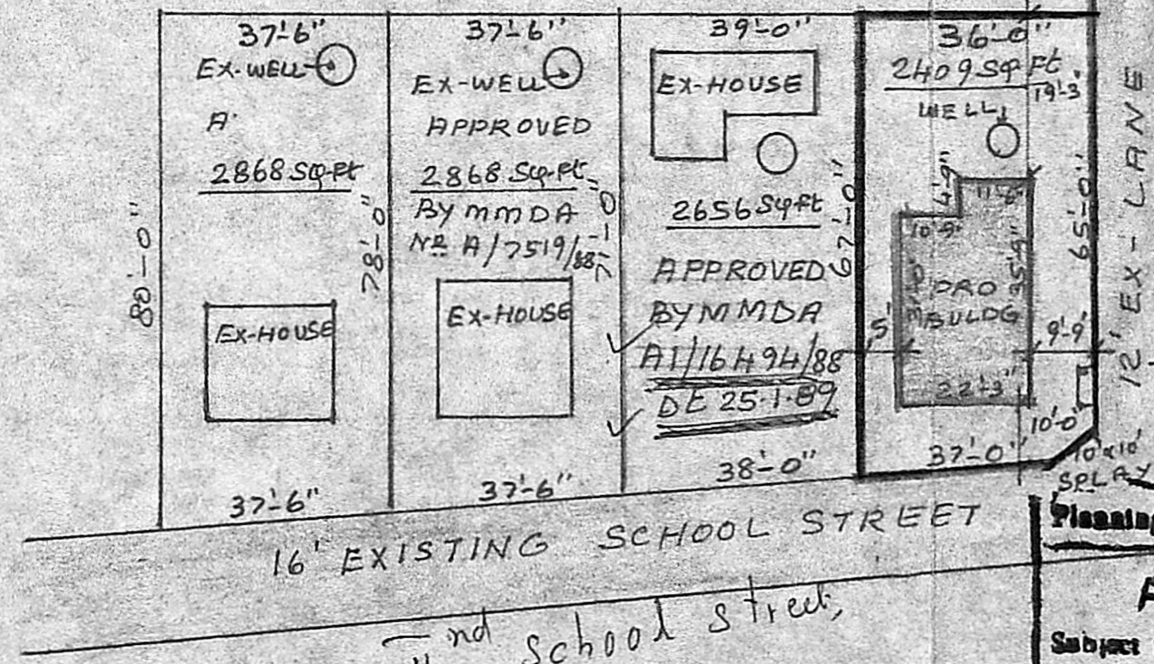 37'-6"
EX-WELL
A
2868 Sq.Ft
80'-0"
78'-0"
EX-HOUSE
37'-6"
37'-6"
EX-WELL
APPROVED
2868 Sq.Ft
BY MMDA
No A/7519/88
EX-HOUSE
37'-6"
39'-0"
EX-HOUSE
2656 Sqft
67'-0"
APPROVED
BY MMDA
A1/16494/88
Dt 25.1.89
38'-0"
36'-0"
2409 Sq Ft
19'-3"
WELL
4'-9"
11'-6"
10'-9"
35'-9"
65'-0"
PRO
BULDG
5'
9'-9"
22'-3"
10'-0"
37'-0"
10'x10'
SPLAY
12' EX-LANE
16' EXISTING SCHOOL STREET
nd School street,
Planning
Subject